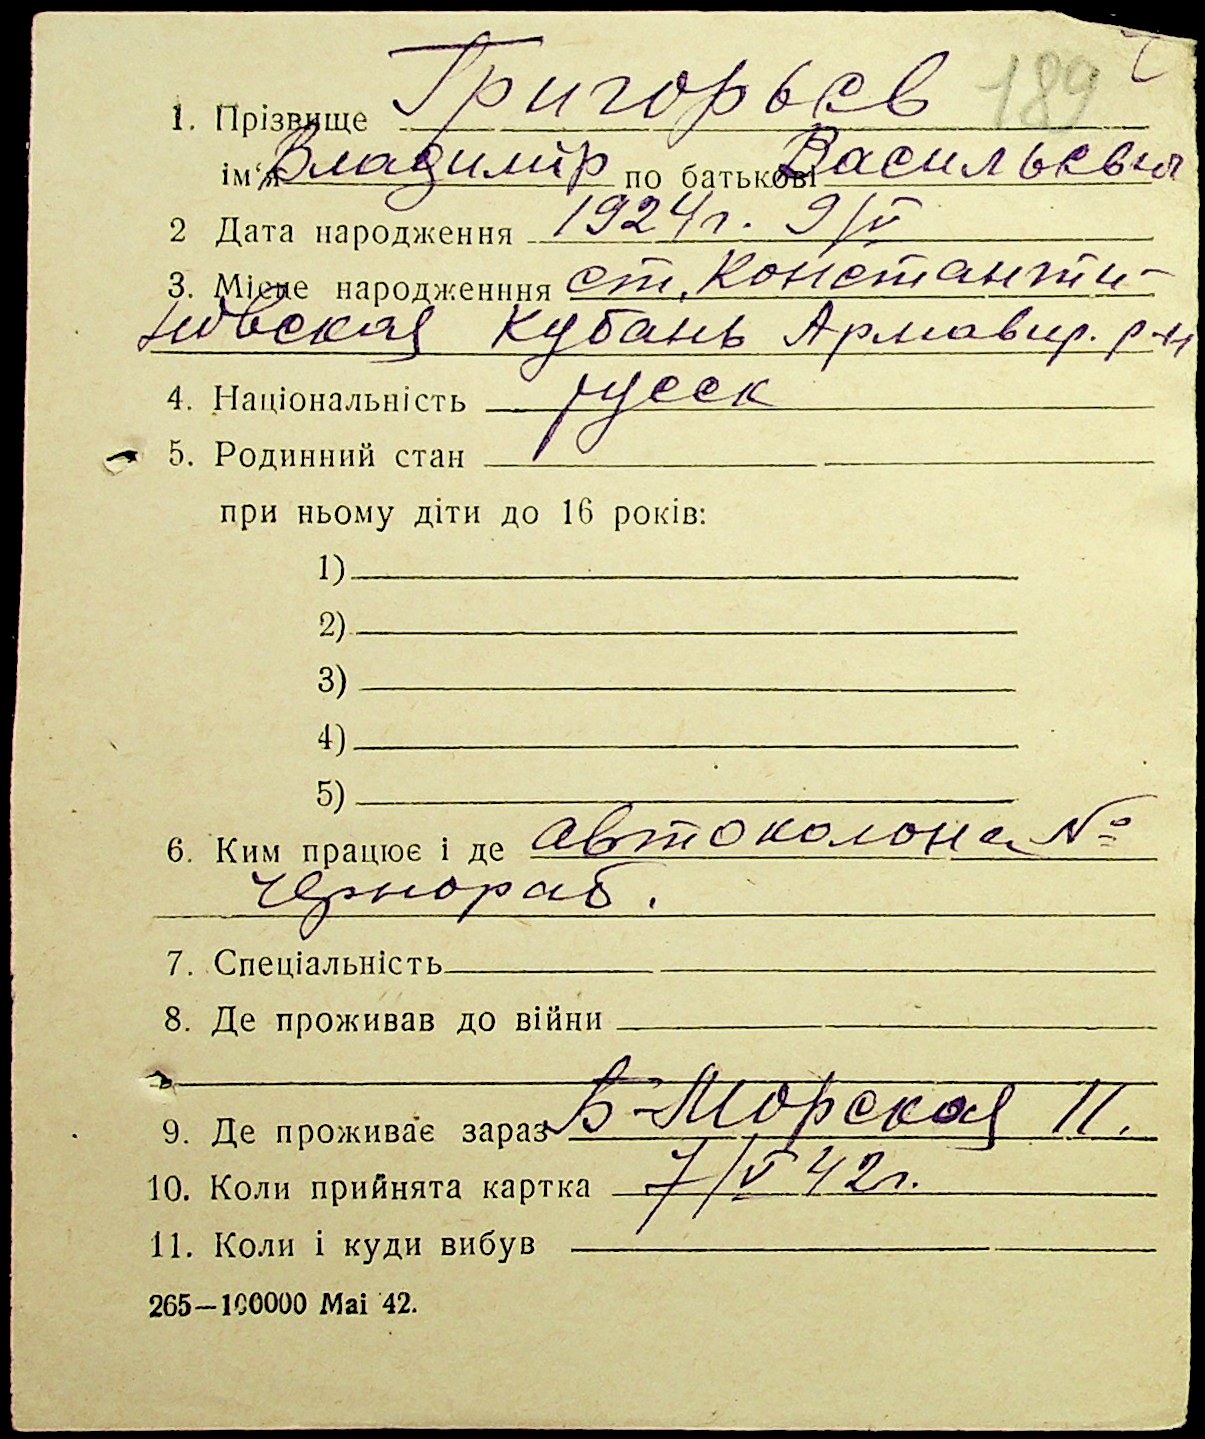 189
1. Прізвище Григорьев
ім'я Владимир по батькові Васильевич
2 Дата народження 1924г. 9/V
3. Місце народженння ст. Константи-
новская Кубань Армавир. р-н
4. Національність русск
5. Родинний стан
при ньому діти до 16 років:
1)
2)
3)
4)
5)
6. Ким працює і де автоколона №
чернораб.
7. Спеціальність
8. Де проживав до війни
9. Де проживає зараз Б-Морская 11.
10. Коли прийнята картка 7/V 42г.
11. Коли і куди вибув
265—100000 Маі 42.